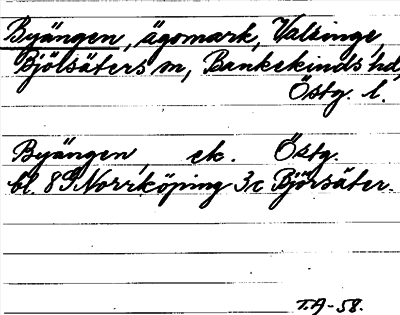 Byängen, ägomark, Valsinge,
Björsäters sn, Bankekinds hd,
Östg. l.
Byängen, ek. Östg.
bl. 8 G Norrköping 3c Björsäter.
T.A-58.